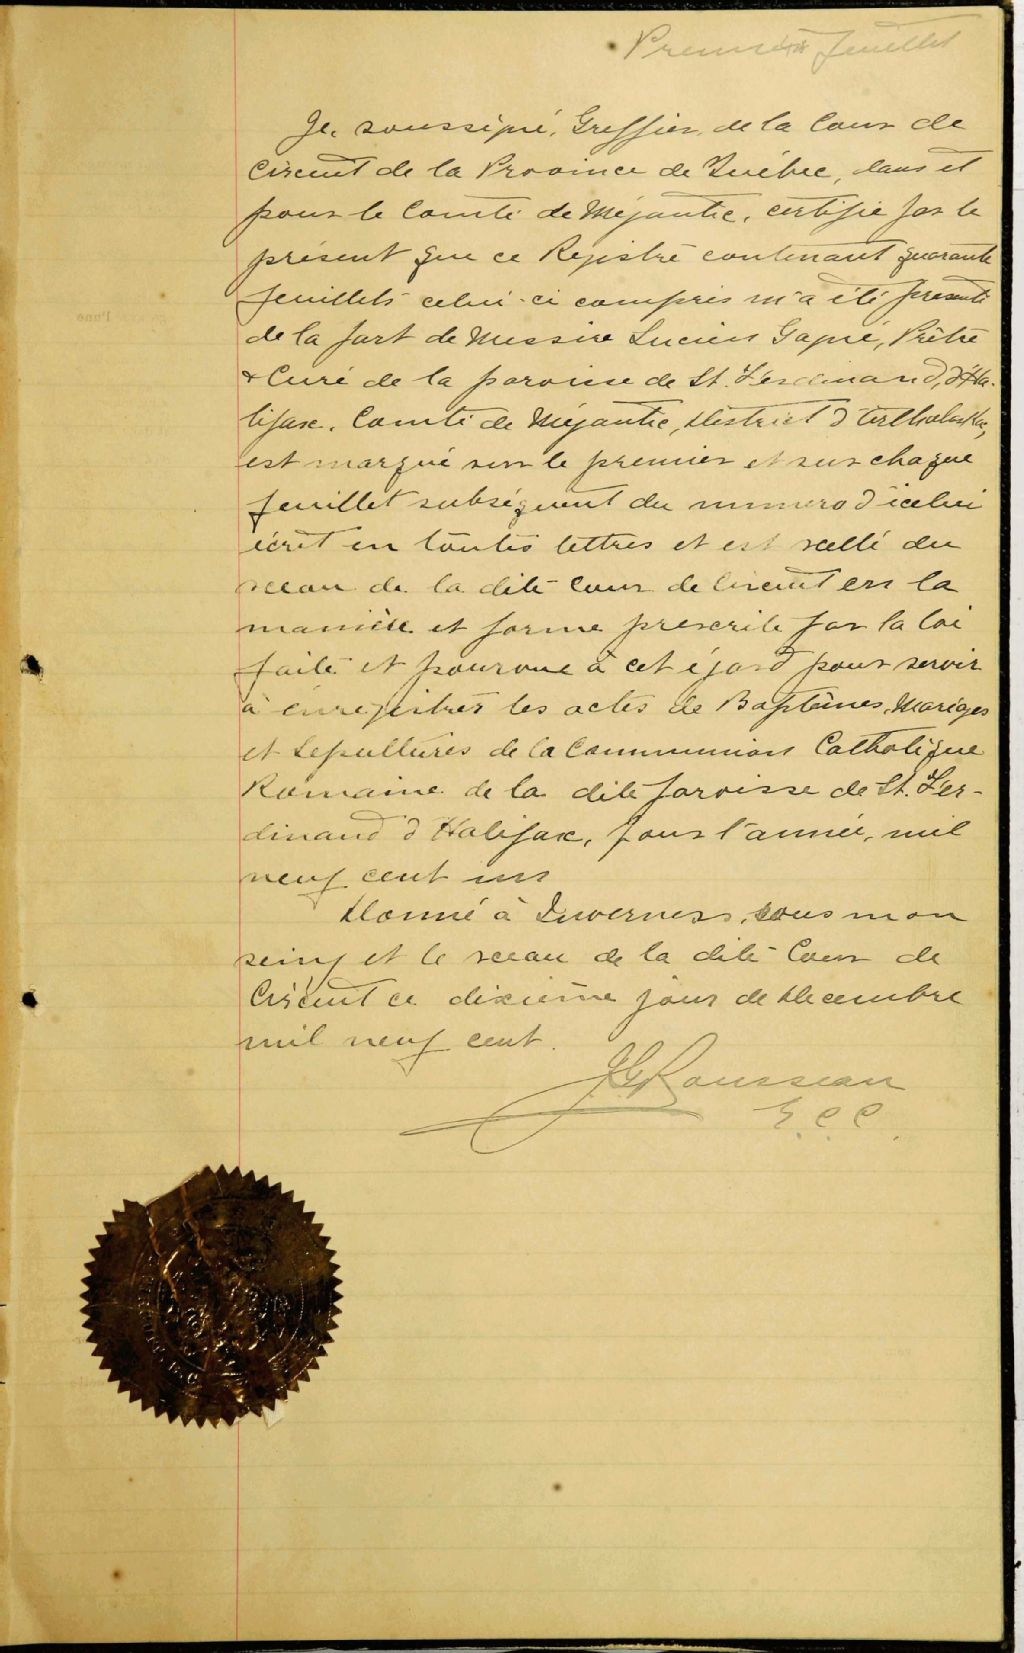 Premier feuillet
Je, soussigné, Greffier, de la Cour de
Circuit de la Province de Québec, dans et
pour le Comté de Mégantic, certifie par le
présent que ce Registre contenant quarante
feuillets celui-ci compris m'a été présenté
de la part de Messire Lucien Gagné, Prêtre
& Curé de la paroisse de St. Ferdinand, d'Ha-
lifax, Comté de Mégantic, District d'Arthabaska,
est marqué sur le premier et sur chaque
feuillet subséquent du numero d'icelui
écrit en toutes lettres et est scellé du
sceau de la dite Cour de Circuit en la
manière et forme prescrite par la loi
faite et pourvue à cet égard pour servir
à enregistrer les actes de Baptêmes, Mariges
et Sepultures de la Communion Catholique
Romaine de la dite paroisse de St. Fer-
dinand d'Halifax, pour l'année, mil
neuf cent un
Donné à Inverness, sous mon
seing et le sceau de la dite Cour de
Circuit ce dixième jour de Decembre
mil neuf cent.
J.G. Rousseau
G.C.C.